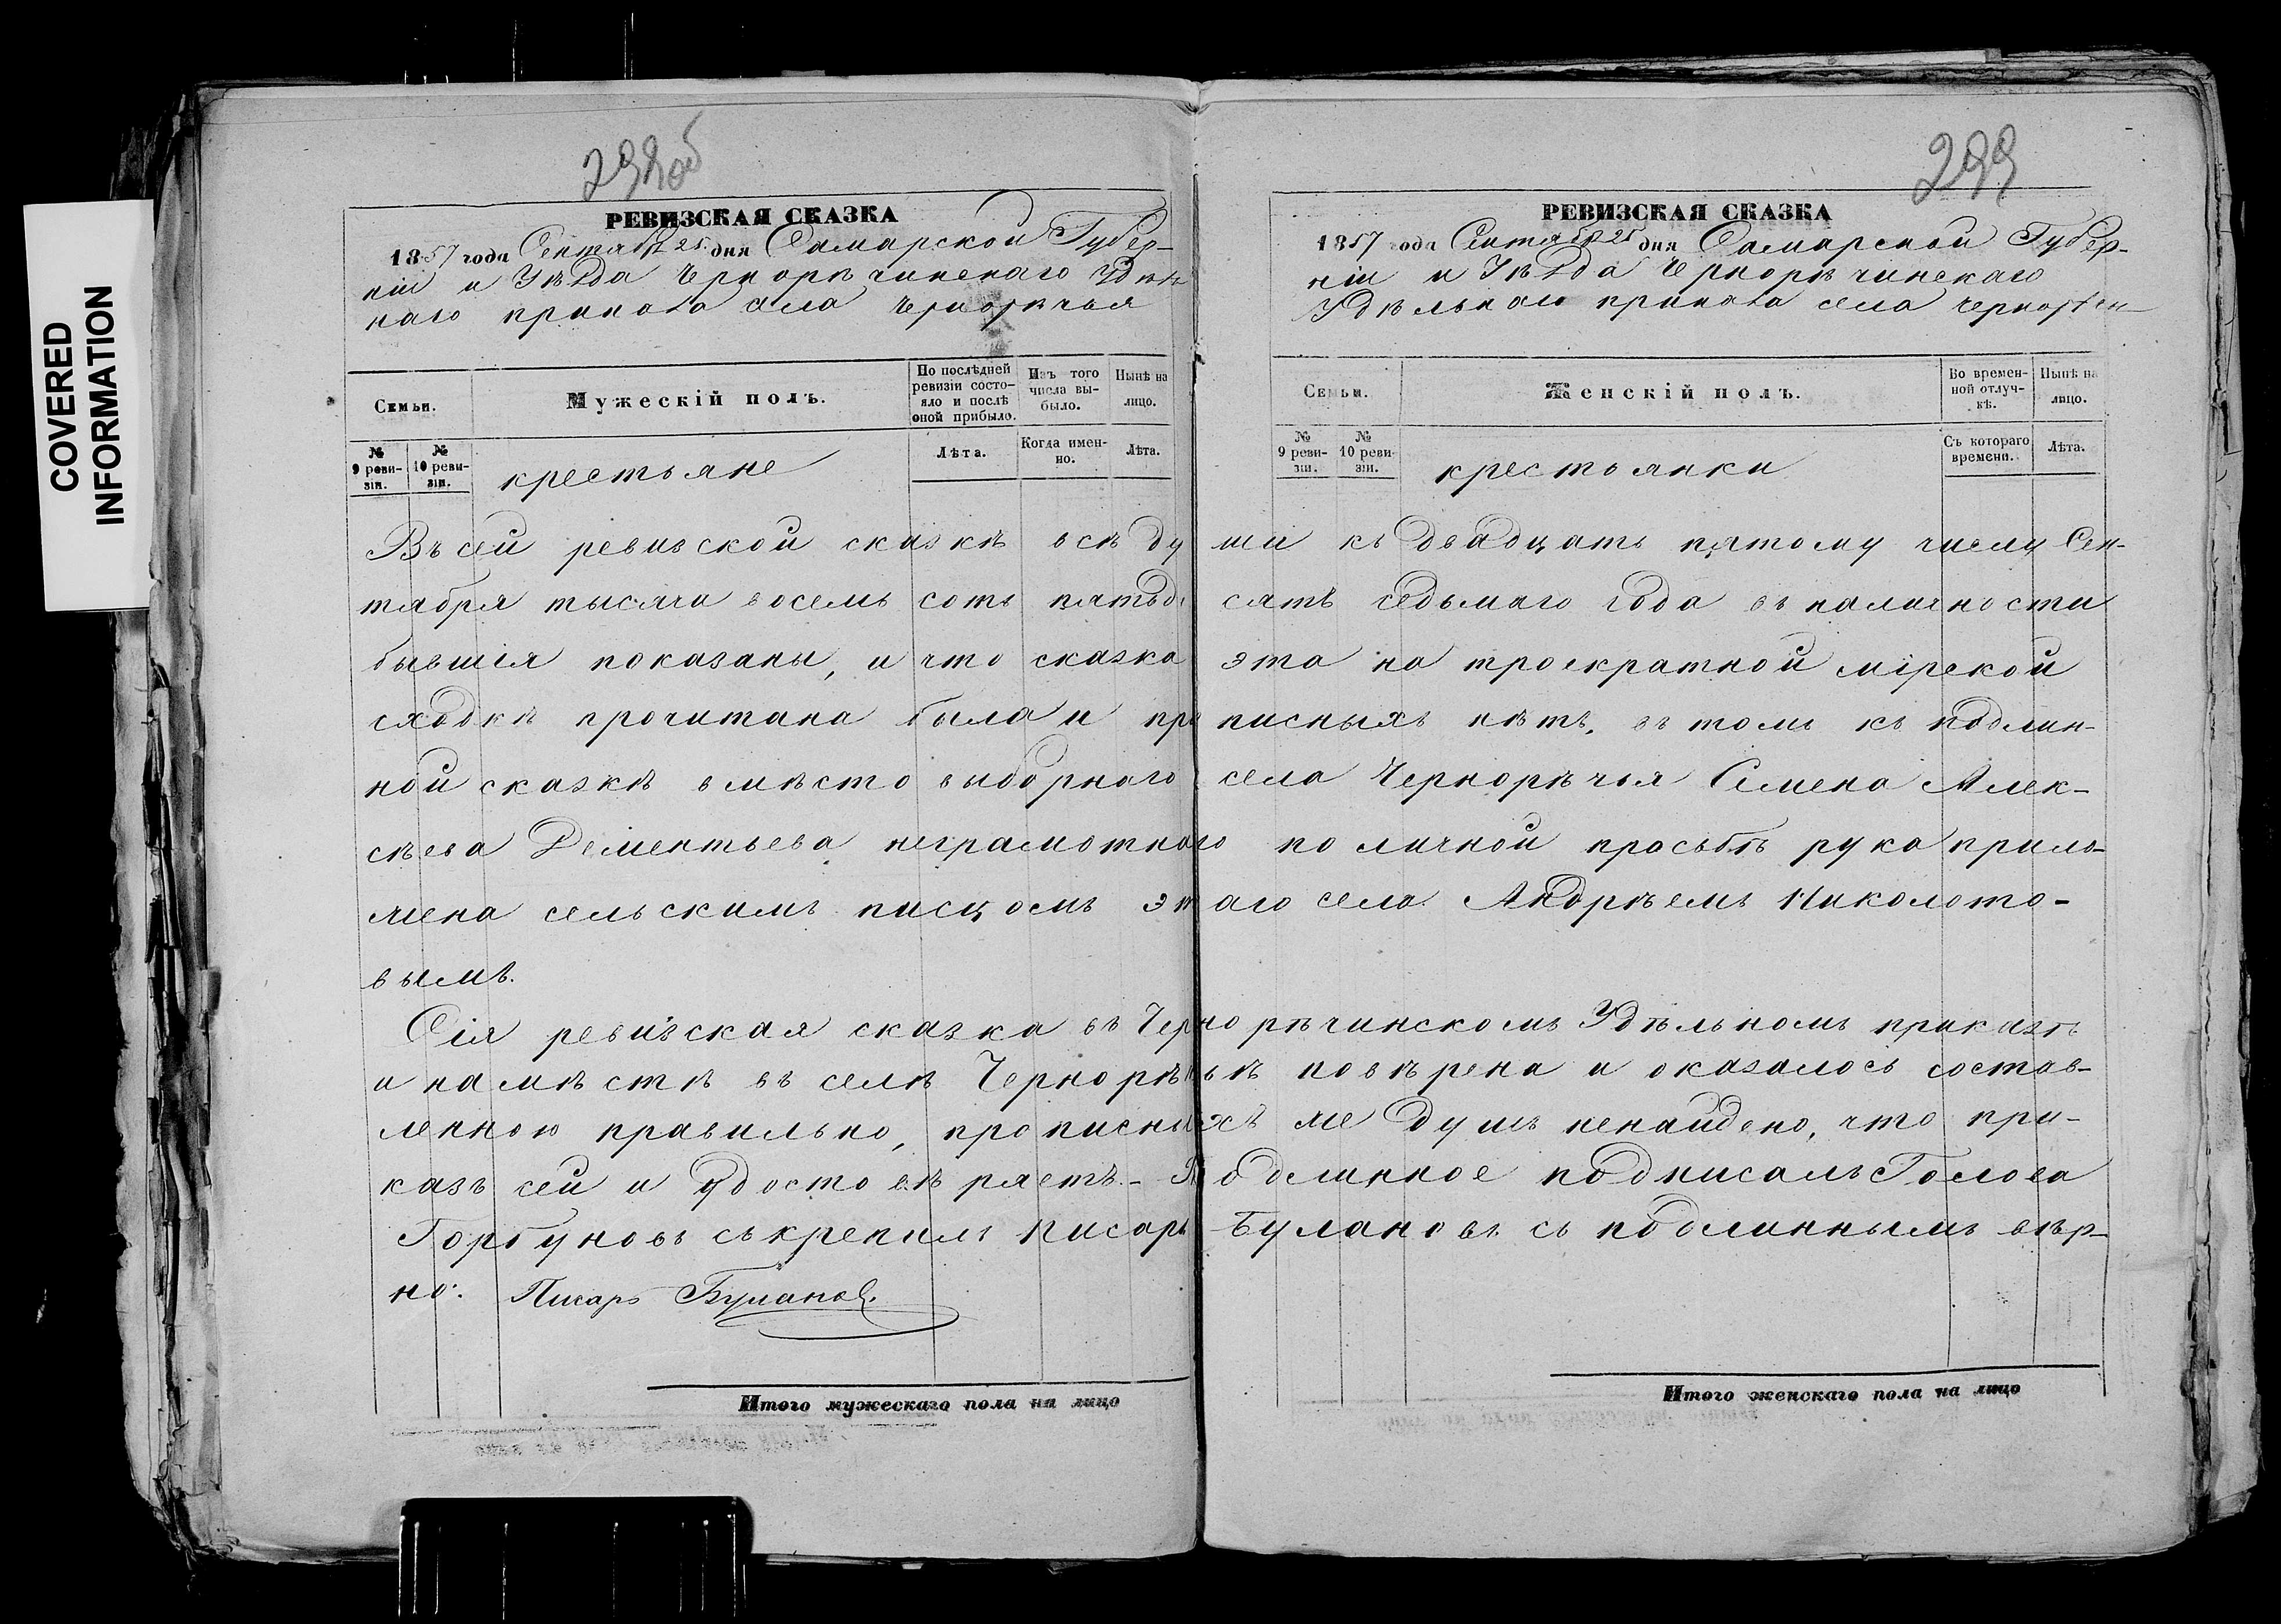 COVERED
INFORMATION
298об
РЕВИЗСКАЯ СКАЗКА
1857 года Сентября 25 дня Самарской Губер-
ніи и Уѣзда Чернорѣчинскаго Удѣль
наго приказа села Чернорѣчья
Семьи.
Мужескій полъ.
По послѣдней ревизіи состо-
яло и послѣ оной прибыло.
Изъ того числа вы-
было.
Нынѣ на лицо.
№ 9 реви-
зіи.
№ 10 реви-
зіи.
крестьяне
Лѣта.
Когда имен-
но.
Лѣта.
299
РЕВИЗСКАЯ СКАЗКА
1857 года Сентября 25 дня Самарской Губер-
ніи и Уѣзда Чернорѣчинскаго
Удѣльнаго приказа села Чернорѣч
Семьи.
Женскій полъ.
Во времен-
ной отлуч-
кѣ.
Нынѣ на лицо.
№ 9 реви-
зіи.
№ 10 реви-
зіи.
крестьянки
Съ котораго времени.
Лѣта.
Въ сей ревизской сказкѣ всѣ души къ двадцать пятому числу Сен-
тября тысяча восемь сотъ пятьдесятъ седьмаго года въ наличности
бывшія показаны, и что сказка эта на троекратной мірской
сходкѣ прочитана была и прописныхъ нѣтъ, въ томъ къ подлин-
ной сказкѣ вмѣсто выборнаго села Чернорѣчья Семена Алек-
сѣева Дементьева неграмотнаго по личной прозьбѣ рука прило-
жена сельскимъ писцомъ этаго села Андрѣемъ Николото-
вымъ.
Сія ревизская сказка въ Чернорѣчинскомъ Удѣльномъ приказѣ
и на мѣстѣ въ селѣ Чернорѣчьѣ повѣрена и оказалось состав-
ленною правильно, прописныхъ же душъ ненайдено, что при-
казъ сей и удостовѣряетъ.- Подлинное подписалъ Голова
Горбуновъ скрепилъ Писарь Булановъ съ подлиннымъ вѣр-
но: Писарь Буланов.
Итого мужескаго пола на лицо
Итого женскаго пола на лицо